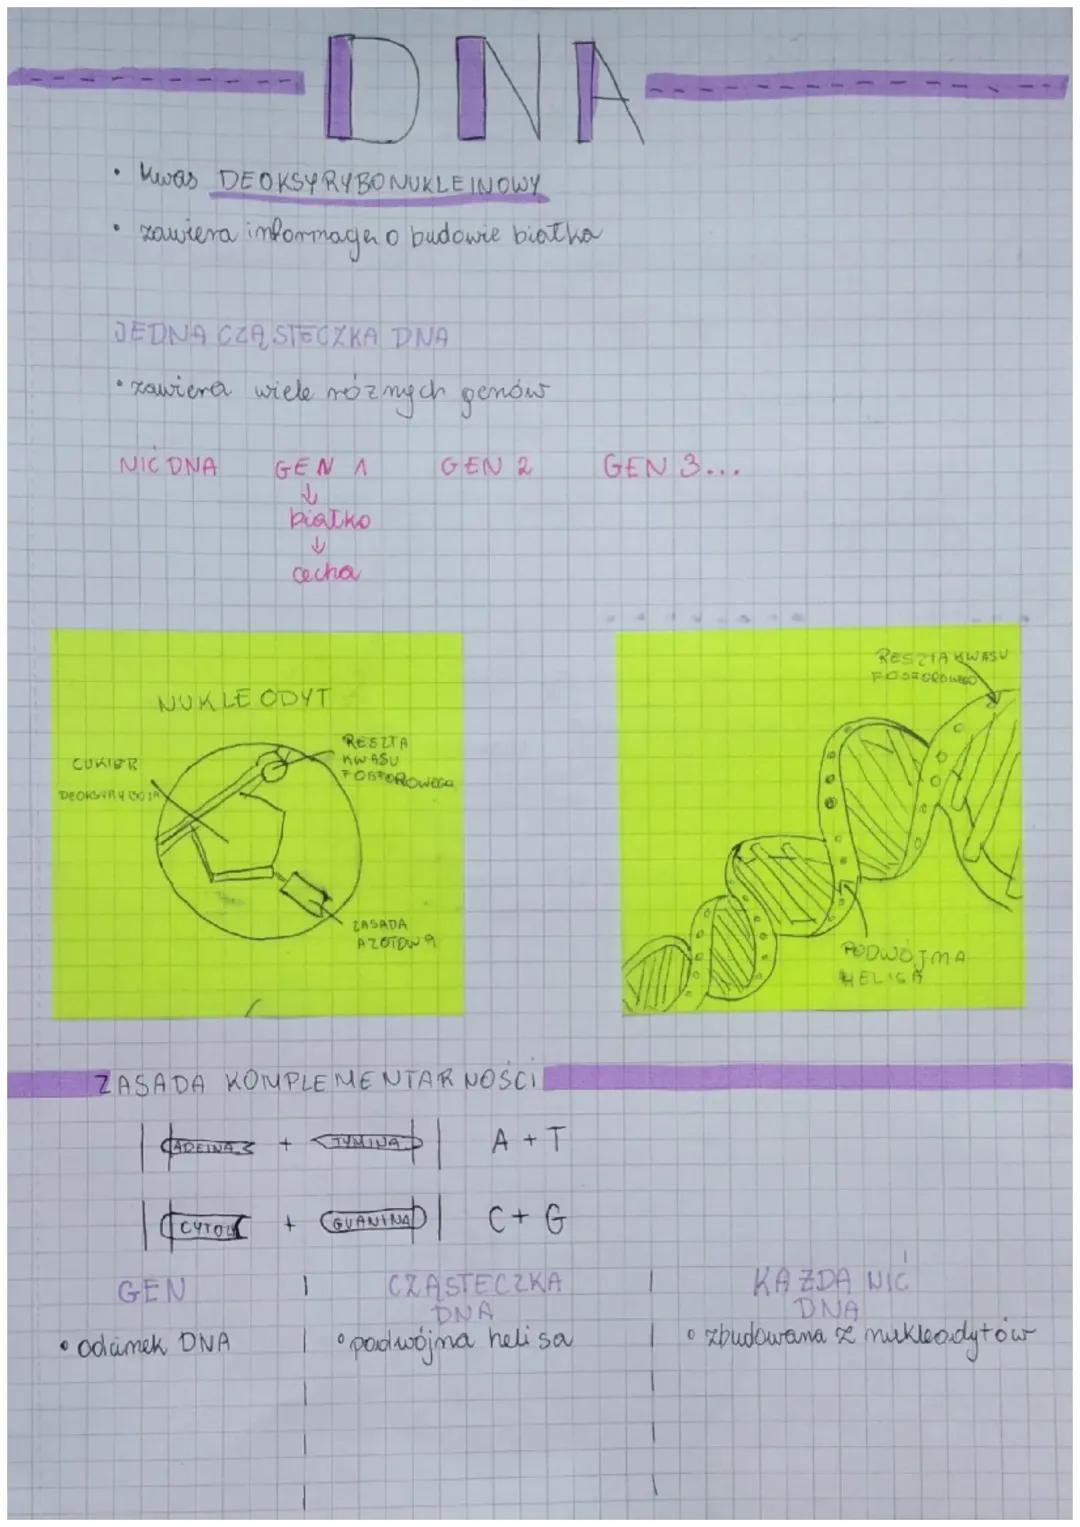 DNA
• Kwas DEOKSYRYBONUKLEINOWY
• zawiera informację o budowie białka
JEDNA CZĄSTECZKA DNA
• zawiera wiele różnych genów
NIĆ DNA GEN 1 GEN 2 GEN 3...
↓
białko
↓
cecha
NUKLEODYT
CUKIER
RESZTA
KWASU
FOSFOROWEGO
ZASADA
AZOTOWA
RESZTA KWASU
FOSFOROWEGO
PODWÓJMA
HELISA
ZASADA KOMPLEMENTARNOŚCI
ADEINA + TYMINA A + T
CYTOZ + GUANINA C + G
GEN
• odcinek DNA
CZĄSTECZKA
DNA
• podwójna helisa
KAŻDA NIĆ
DNA
• zbudowana z nukleodytów